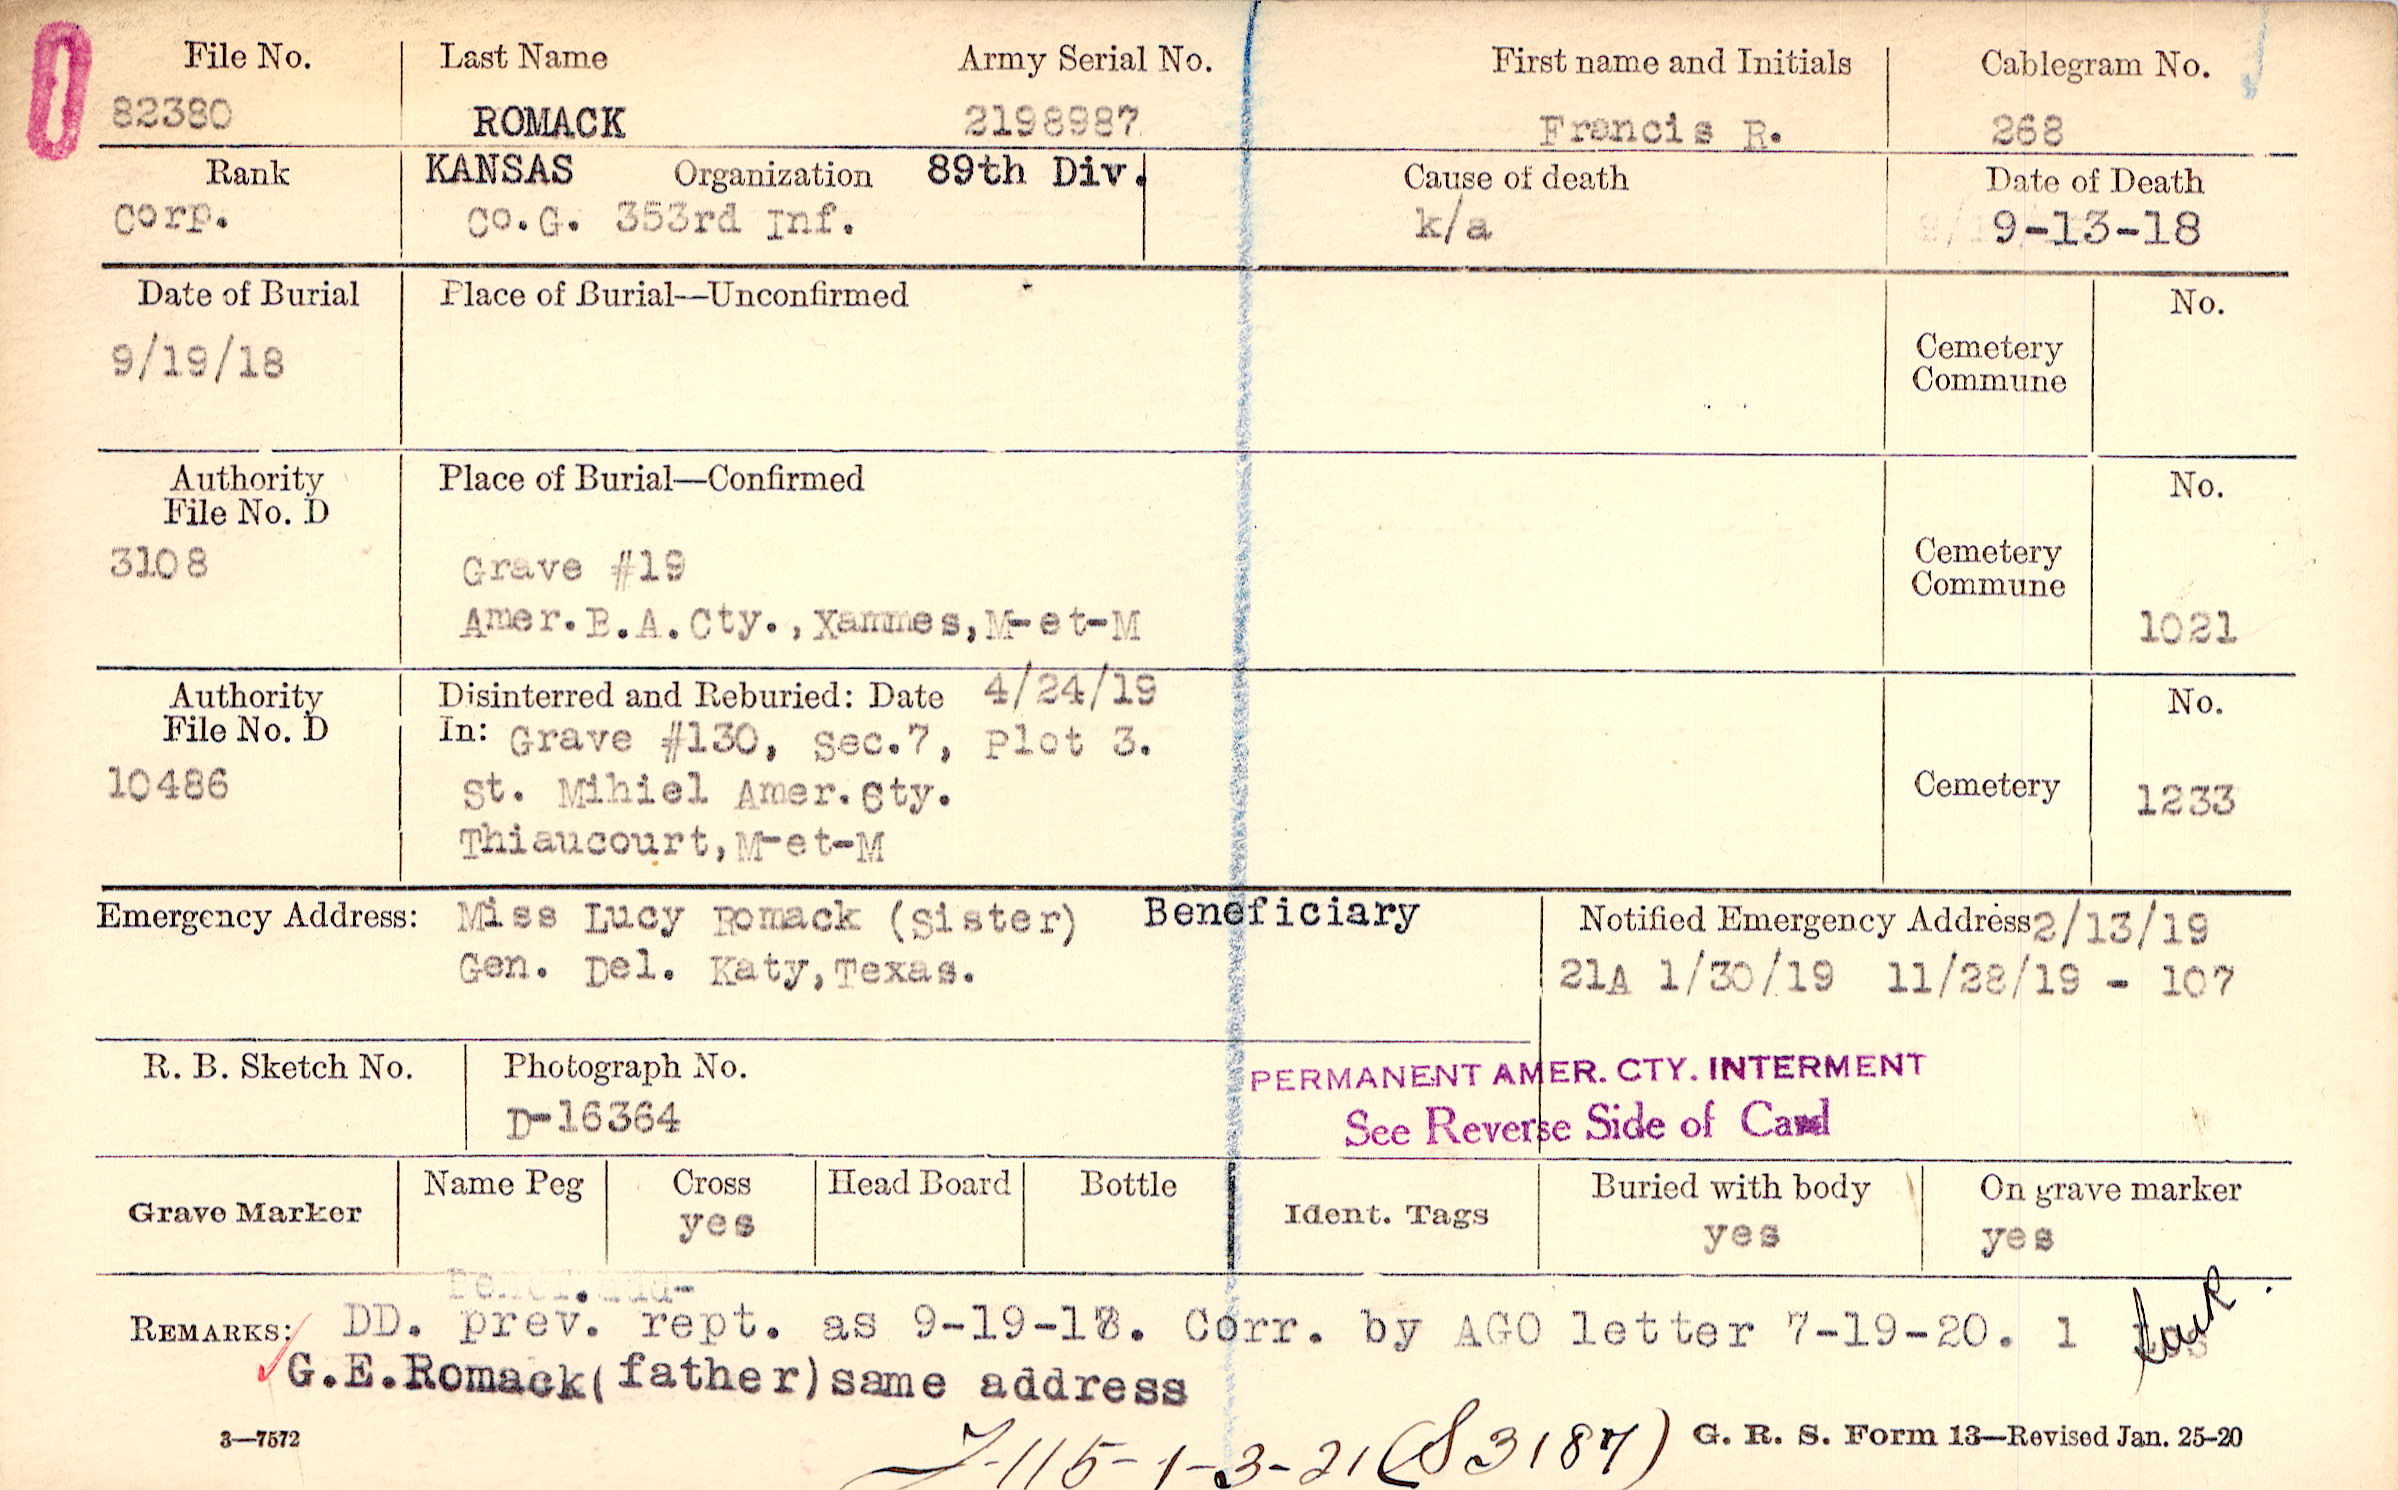 File No. Last Name Army Serial No. First name and Initials Cablegram No.
82380 ROMACK 2198987 Francis R. 268
Rank KANSAS Organization 89th Div. Cause of death Date of Death
Corp. Co.G. 353rd Inf. k/a 9-13-18
Date of Burial Place of Burial—Unconfirmed No.
9/19/18 Cemetery
Commune
Authority Place of Burial—Confirmed No.
File No. D
3108 Grave #19 Cemetery
Commune
Amer.B.A.Cty.,Xammes,M-et-M 1021
Authority Disinterred and Reburied: Date 4/24/19 No.
File No. D In: Grave #130, Sec.7, Plot 3.
10486 St. Mihiel Amer.Cty. Cemetery 1233
Thiaucourt,M-et-M
Emergency Address: Miss Lucy Romack (Sister) Beneficiary Notified Emergency Address 2/13/19
Gen. Del. Katy,Texas. 21A 1/30/19 11/28/19 - 107
R. B. Sketch No. Photograph No. PERMANENT AMER. CTY. INTERMENT
D-16364 See Reverse Side of Card
Grave Marker Name Peg Cross Head Board Bottle Ident. Tags Buried with body On grave marker
yes yes yes
REMARKS: DD. prev. rept. as 9-19-18. Corr. by AGO letter 7-19-20. 1
G.E.Romack(father)same address
3—7572 G. R. S. Form 13—Revised Jan. 25-20
J-115-1-3-21(S3187)